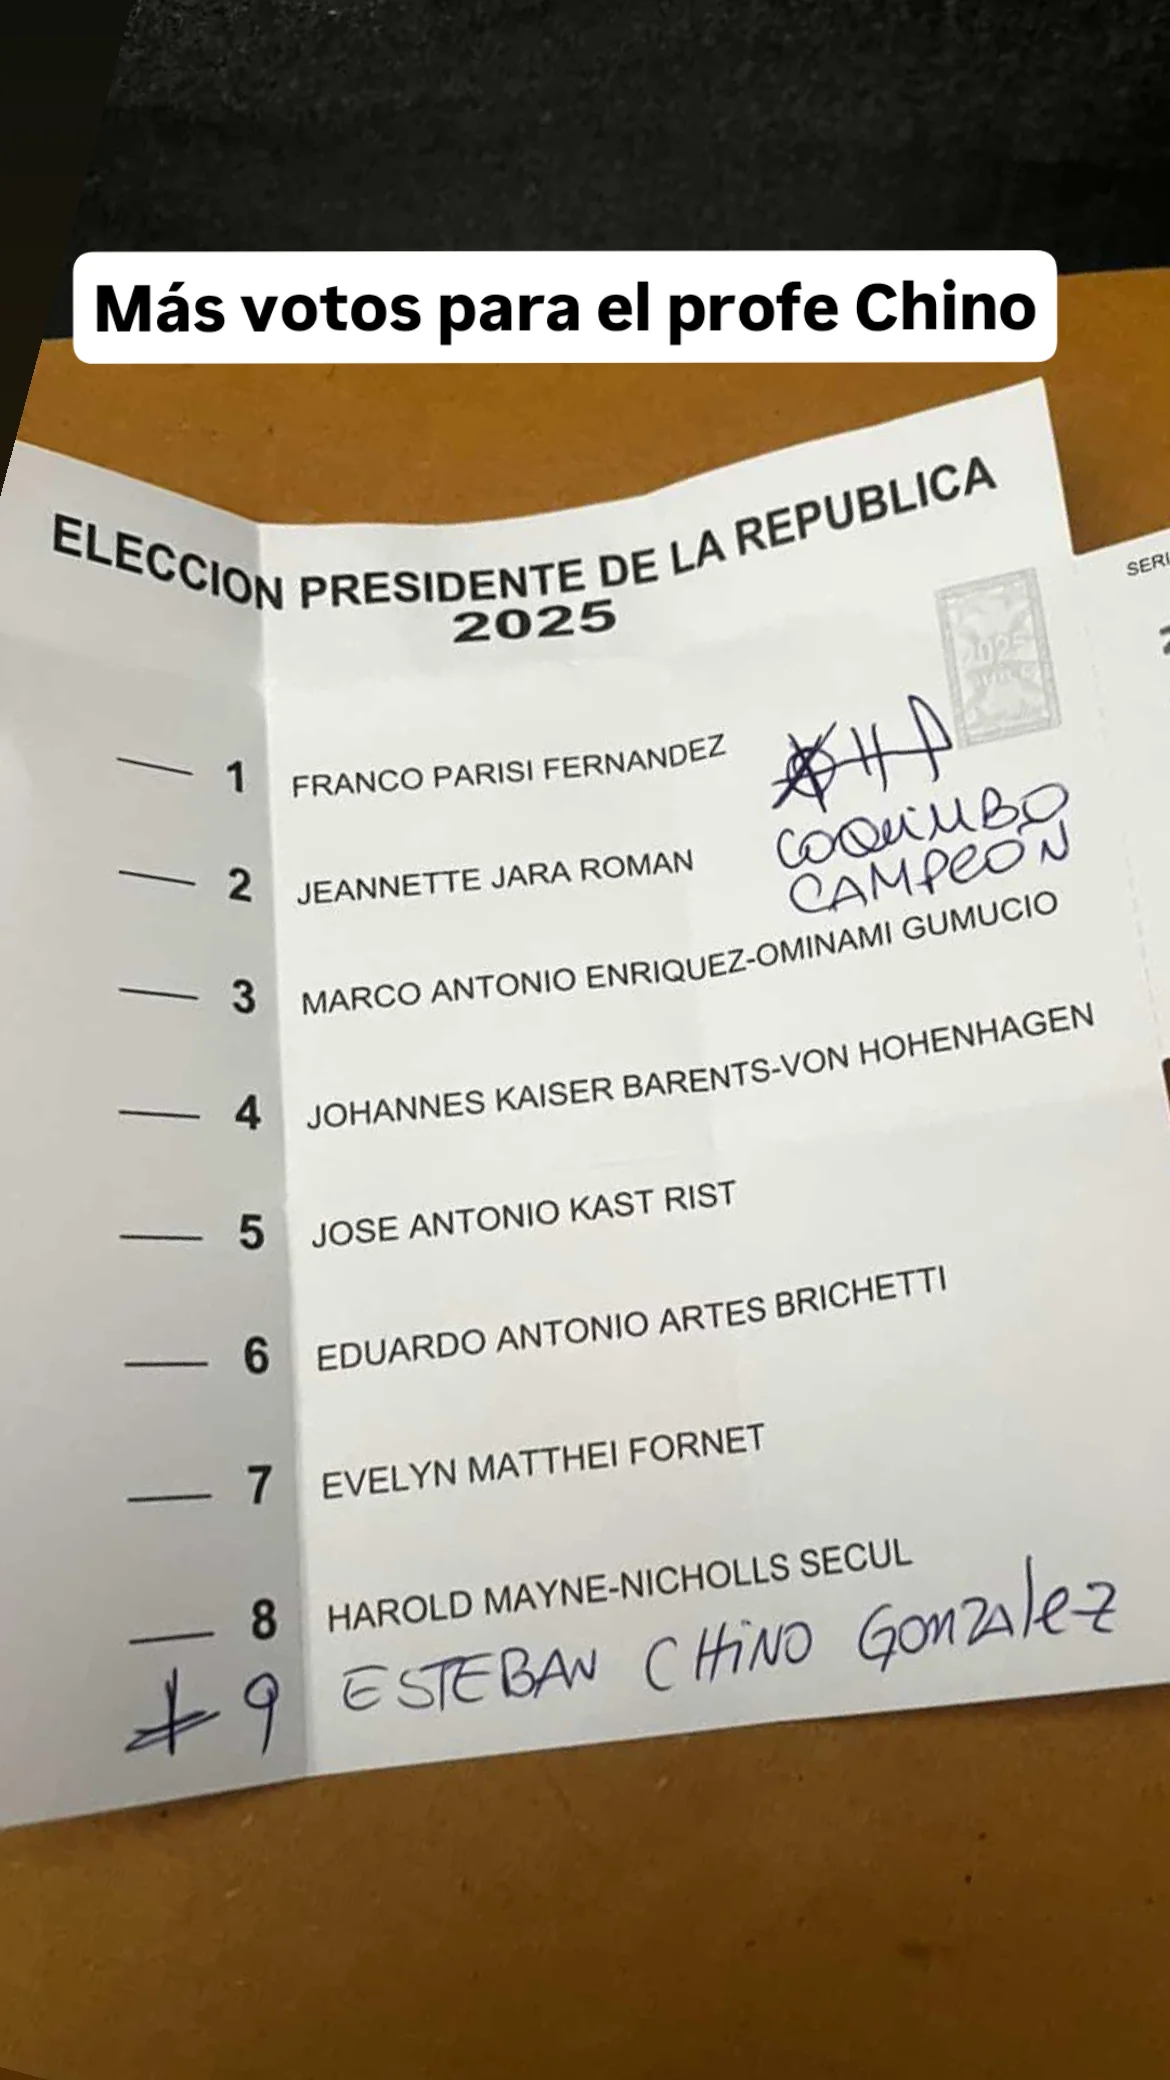 Más votos para el profe Chino
ELECCION PRESIDENTE DE LA REPUBLICA
2025
SERI
2025
1 FRANCO PARISI FERNANDEZ
COQUIMBO
2 JEANNETTE JARA ROMAN
CAMPEON
3 MARCO ANTONIO ENRIQUEZ-OMINAMI GUMUCIO
4 JOHANNES KAISER BARENTS-VON HOHENHAGEN
5 JOSE ANTONIO KAST RIST
6 EDUARDO ANTONIO ARTES BRICHETTI
7 EVELYN MATTHEI FORNET
8 HAROLD MAYNE-NICHOLLS SECUL
9 ESTEBAN CHINO GONZALEZ